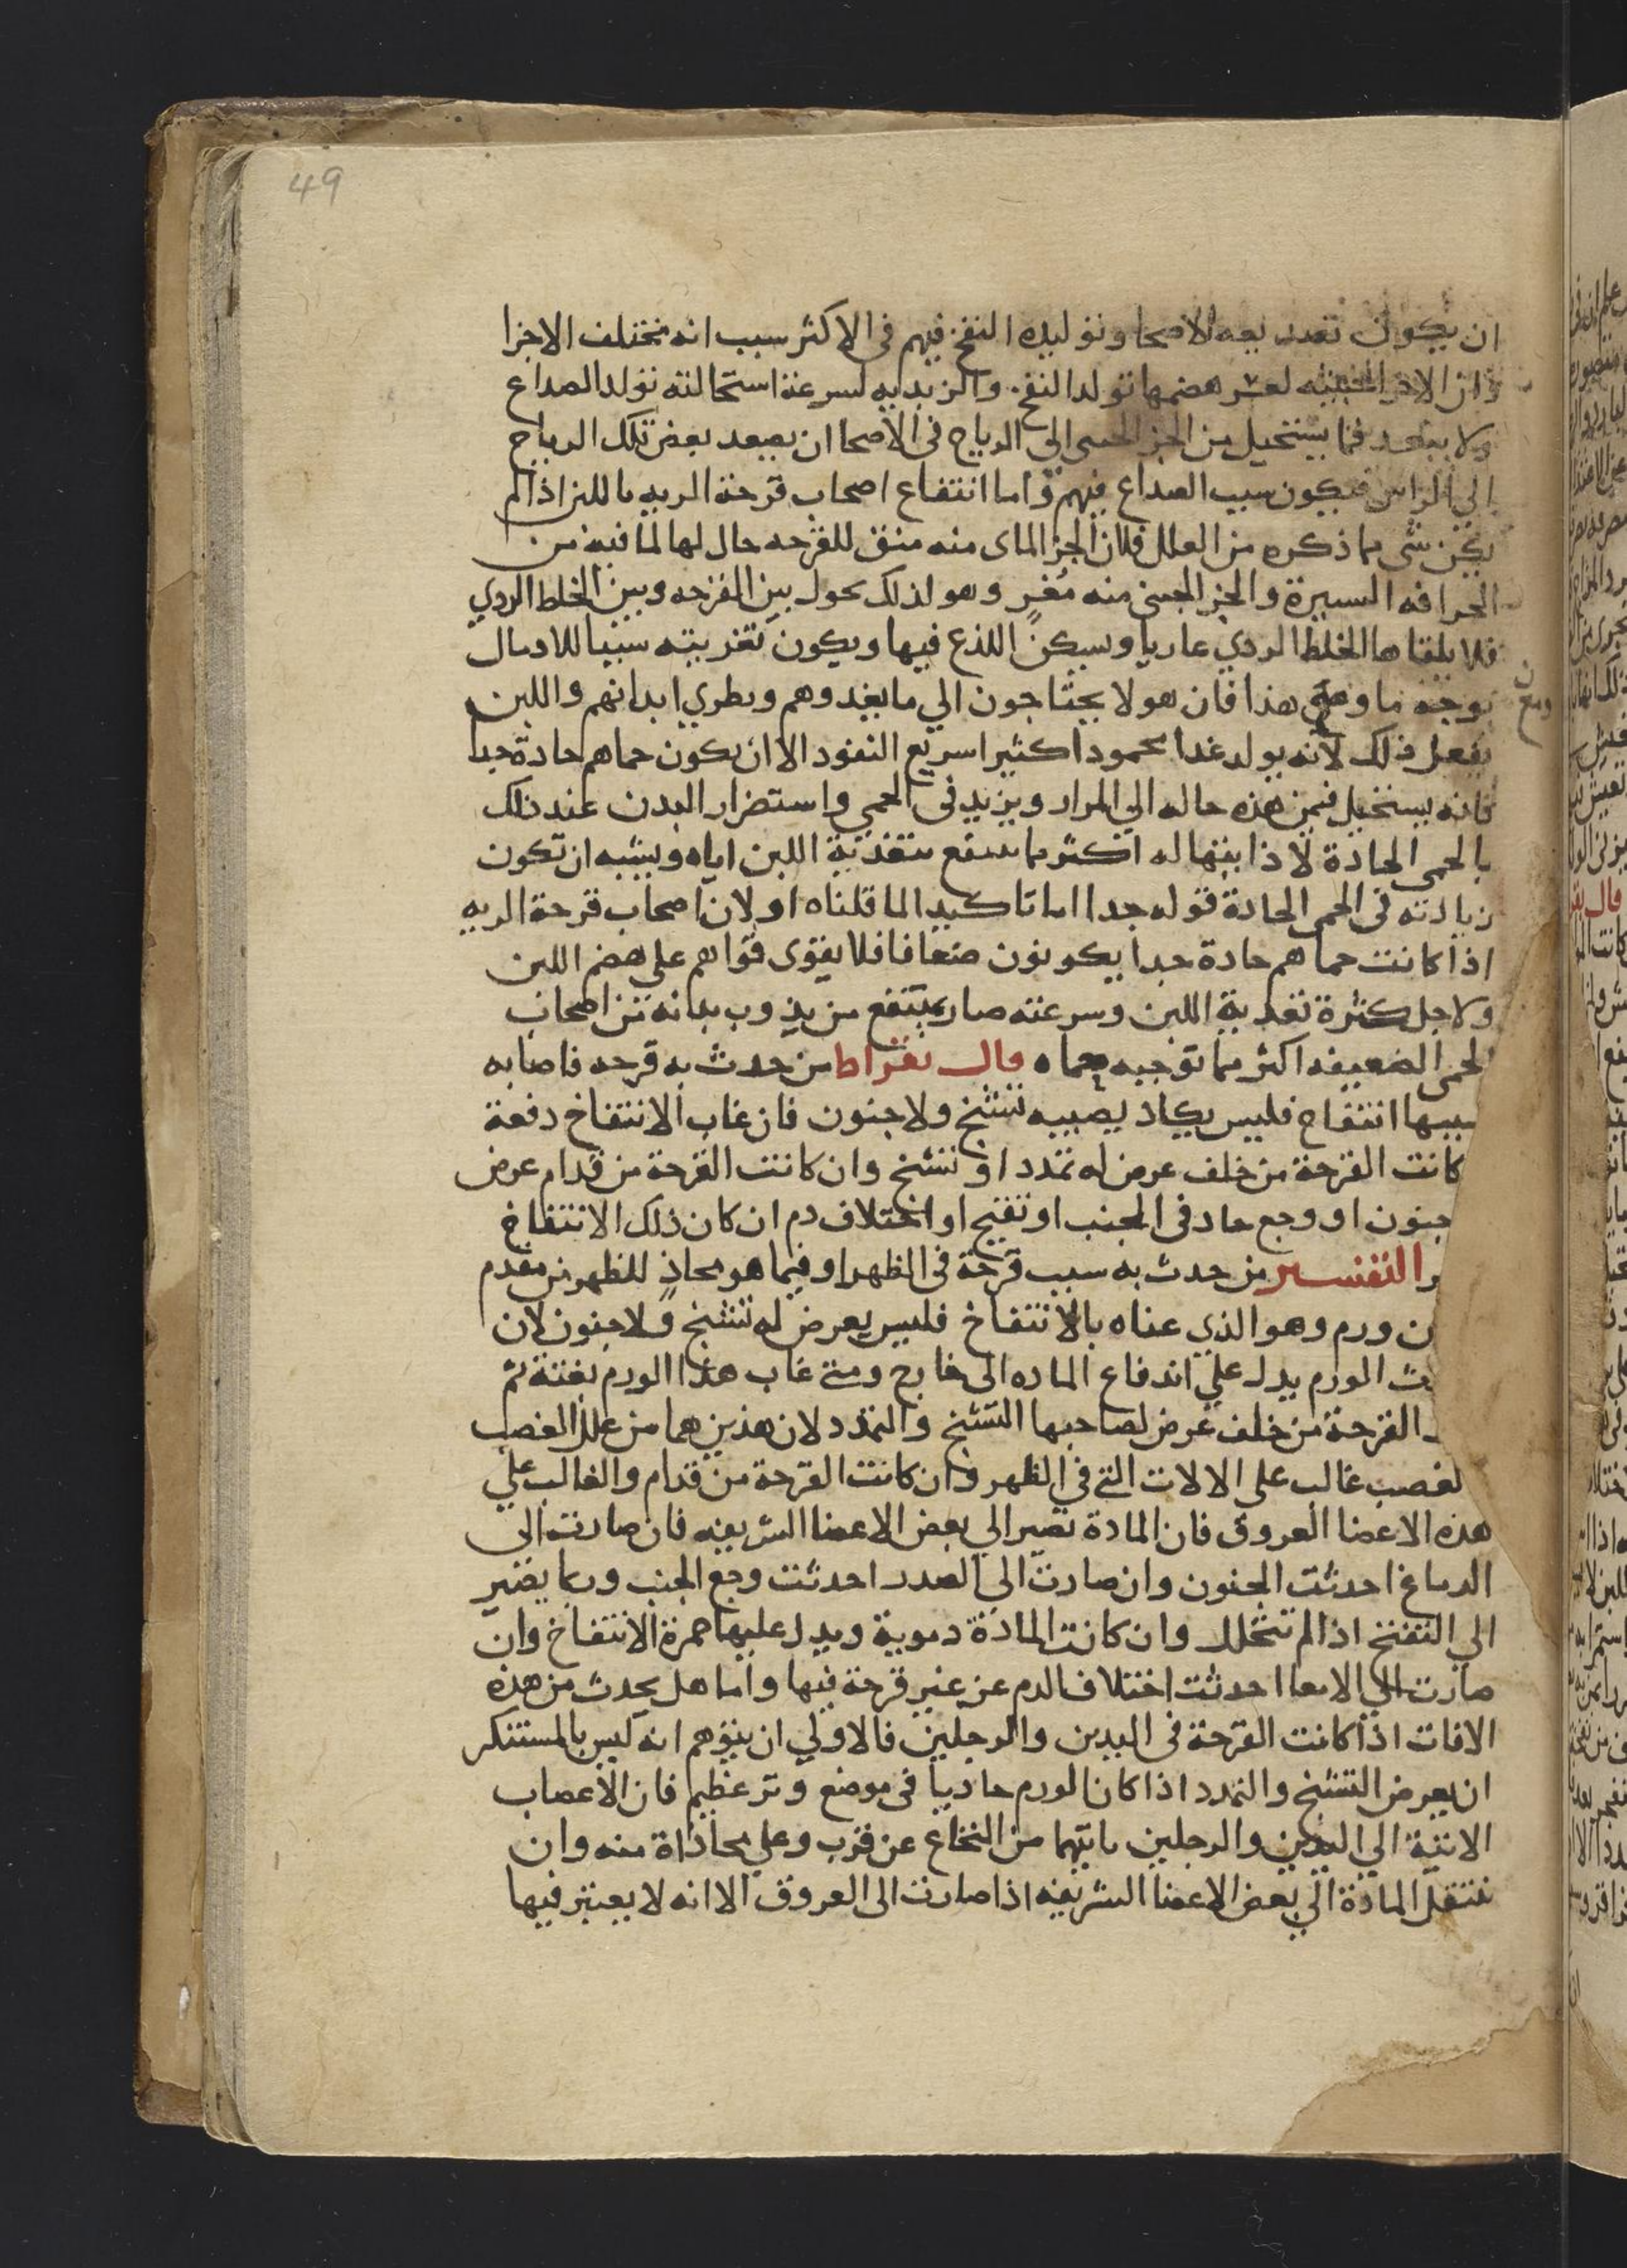 49
ان يكون تصديعه للاصحا وتوليده النفخ فيهم في الاكثر سبب انه مختلف الاجزا
وان الاجزا الجبنيه لعسر هضمها تولد النفخ والزبديه لسرعة استحالته تولد الصداع
ولا يبعد فما يستحيل من الجز الجبنى الى الرياح في الاصحا ان يصعد بعض تلك الرياح
الى الراس فيكون سبب الصداع فيهم واما انتفاع اصحاب قرحة الريه باللبن اذا لم
يكن شى مما ذكره من العلل فلان الجز الماى منه منق للقرحه جال لها لما فيه من
الحرافه اليسيرة والجز الجبنى منه مغرٍ وهو لذلك يحول بين القرحه وبين الخلط الردي
فلا يلقاها الخلط الردي عاريا ويسكن اللذع فيها ويكون تغريته سببا للادمال
بوجه ما ومع هذا فان هولا يحتاجون الي ما يغدوهم ويطري ابدانهم واللبن
يفعل ذلك لانه يولد غدا محمودا كثيرا سريع النفود الا ان يكون حماهم حادة جدا
فانه يستحيل فيمن هذه حاله الي المرار ويزيد في الحمى واستضرار البدن عند ذلك
بالحمى الحادة لاذابتها له اكثر مما ينتفع بتغذية اللبن اياه ويشبه ان تكون
زيادته في الحمى الحادة قوله جدا اما تاكيد الما قلناه او لان اصحاب قرحة الريه
اذا كانت حماهم حادة جدا يكونون ضعافا فلا يقوى قواهم على هضم اللبن
ولاجل كثرة تغدية اللبن وسرعته صار ينتفع من يذوب بدانه من اصحاب
الحمى الضعيفه اكثر مما توجبه حماه قال بقراط من حدث به قرحه فاصابه
بسببها انتفاخ فليس يكاد يصيبه تشنج ولا جنون فان غاب الانتفاخ دفعة
كانت القرحة من خلف عرض له تمدد او تشنج وان كانت القرحة من قدام عرض
جنون او وجع حاد في الجنب او تقيح او اختلاف دم ان كان ذلك الانتفاخ
ر التفسير من حدث به سبب قرحة في الظهر او فيما هو محاذٍ للظهر من مقدم
ن ورم وهو الذي عناه بالانتفاخ فليس يعرض له تشنج ولا جنون لان
ث الورم يدل علي اندفاع الماده الى خارج ومتى غاب هذا الورم بغتة ثم
القرحة من خلف عرض لصاحبها التشنج والتمدد لان هذين هما من علل العصب
لعصب غالب على الالات التي في الظهر وان كانت القرحة من قدام والغالب علي
هذه الاعضا العروق فان المادة تصير الي بعض الاعضا الشريفه فان صارت الى
الدماغ احدثت الجنون وان صارت الى الصدر احدثت وجع الجنب وربما يصير
الي التقيح اذا لم تتحلل وان كانت المادة دموية ويدل عليها حمرة الانتفاخ وان
صارت الي الامعا احدثت اختلاف الدم عن غير قرحة فيها واما هل يحدث من هذه
الافات اذا كانت القرحة في اليدين والرجلين فالاولي ان يتوهم انه ليس بالمستنكر
ان يعرض التشنج والتمدد اذا كان الورم حاديا في موضع وتر عظيم فان الاعصاب
الاتية الي اليدين والرجلين ياتيهما من النخاع عن قرب وعلي محاذاة منه وان
تنتقل المادة الي بعض الاعضا الشريفه اذا صارت الى العروق الا انه لا يعتبر فيها